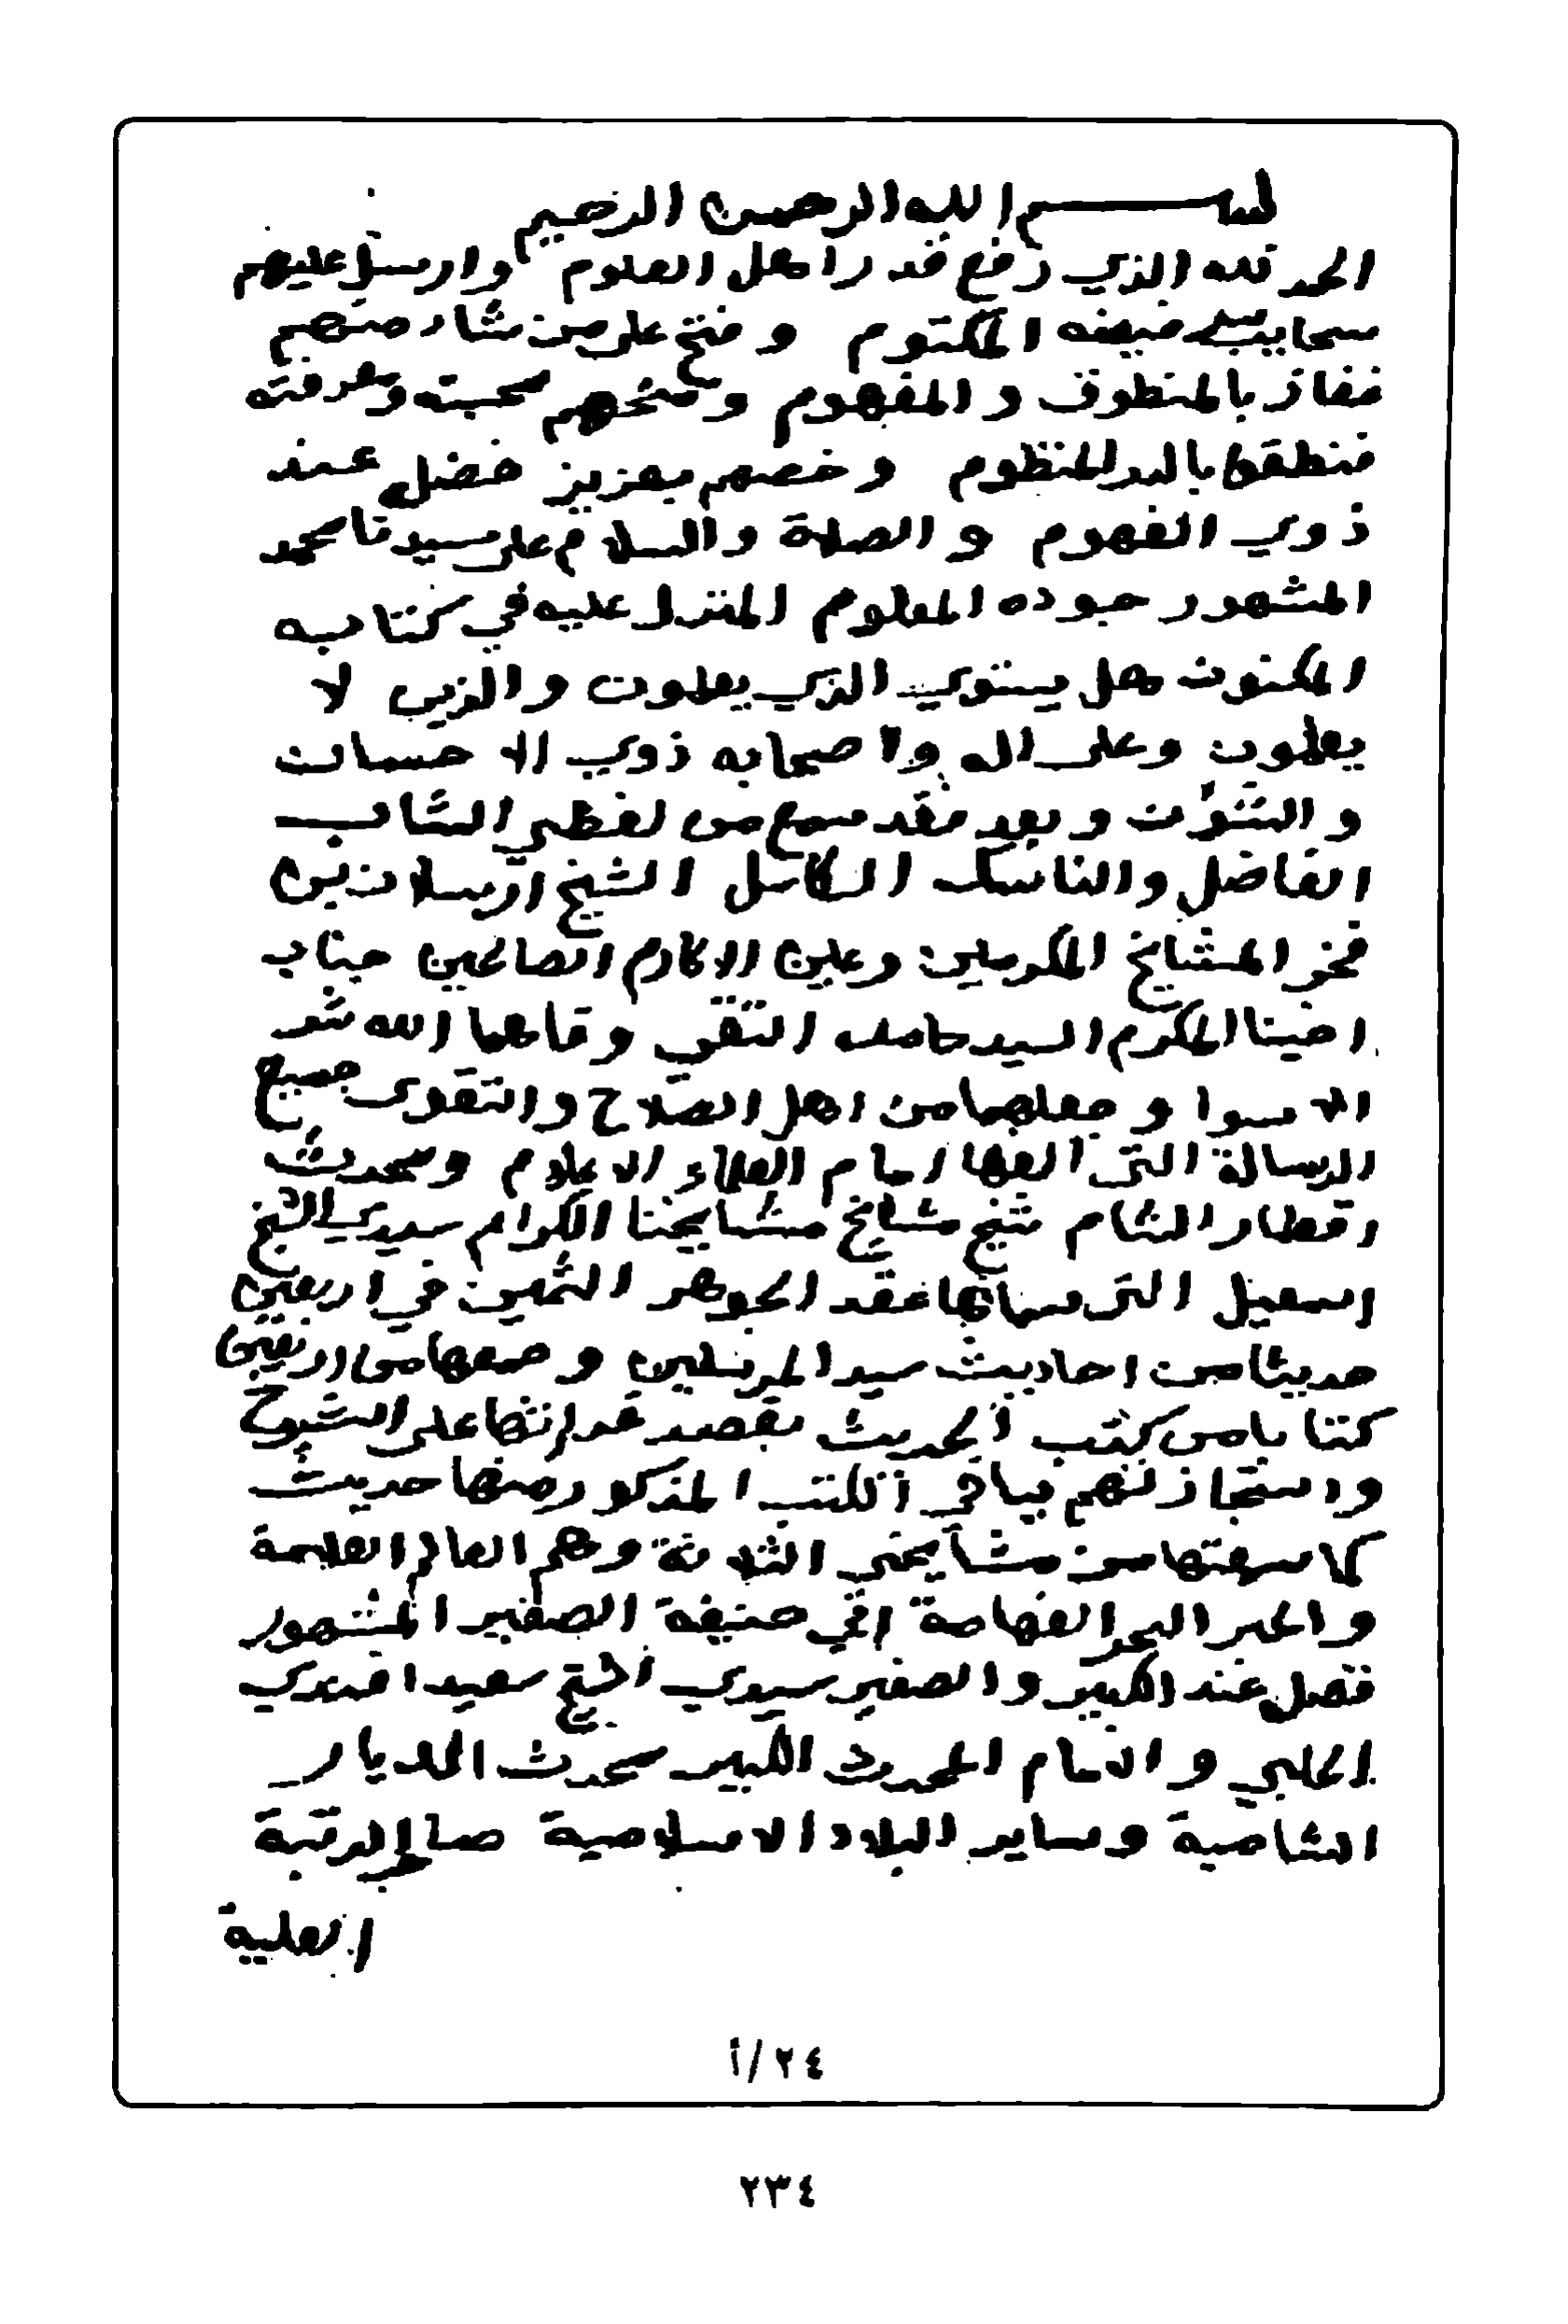 بسم الله الرحمن الرحيم
الحمد لله الذي رفع قدر اهل العلوم وارسل عليهم
سحايب فيضه المكتوم وفتح على من شاء منهم
ففاز بالمنطوق والمفهوم ومنحهم محبته ومعرفته
فنطقوا بالدر المنظوم وخصهم بعزيز فضل عند
ذوي الفهوم والصلاة والسلام على سيدنا محمد
المشهور جوده المعلوم المنزل عليه في كتابه
المكنون هل يستوي الذي يعلمون والذين لا
يعلمون وعلى اله واصحابه ذوي الاحسان
و وبعد فقد سمع من لفظي الشاب
الفاضل والناسك الكامل الشيخ ارسلان بن
فخر المشايخ المكرمين وعين الاكارم الصالحين جناب
اخينا المكرم السيد حامد التقي وقاهما الله شر
الاسوا وجعلهما من اهل الصلاح والتقوى جميع
الرسالة التي الفها امام العلماء الاعلام ومحدث
اقطار الشام شيخ مشايخ مشايخنا الكرام سيدي الشيخ
اسمعيل التي سماها عقد الجوهر الثمين في اربعين
حديثا من احاديث سيد المرسلين وجمعها من اربعين
كتابا من كتب الحديث بقصد قرائتها على الشيوخ
واستجازتهم بباقي الكتب المذكور منها حديث
كما سمعتها من مشايخي الثلاثة وهم العالم العلامة
والحبر البحر الفهامة ابي حنيفة الصغير المشهور
فضل عند الكبير والصغير سيدي الشيخ سعيد افندي
الحلبي والامام المحدث الكبير محدث الديار
الشامية وساير البلاد الاسلامية صاحب الرتبة
العلية
٢٤/أ
٢٣٤